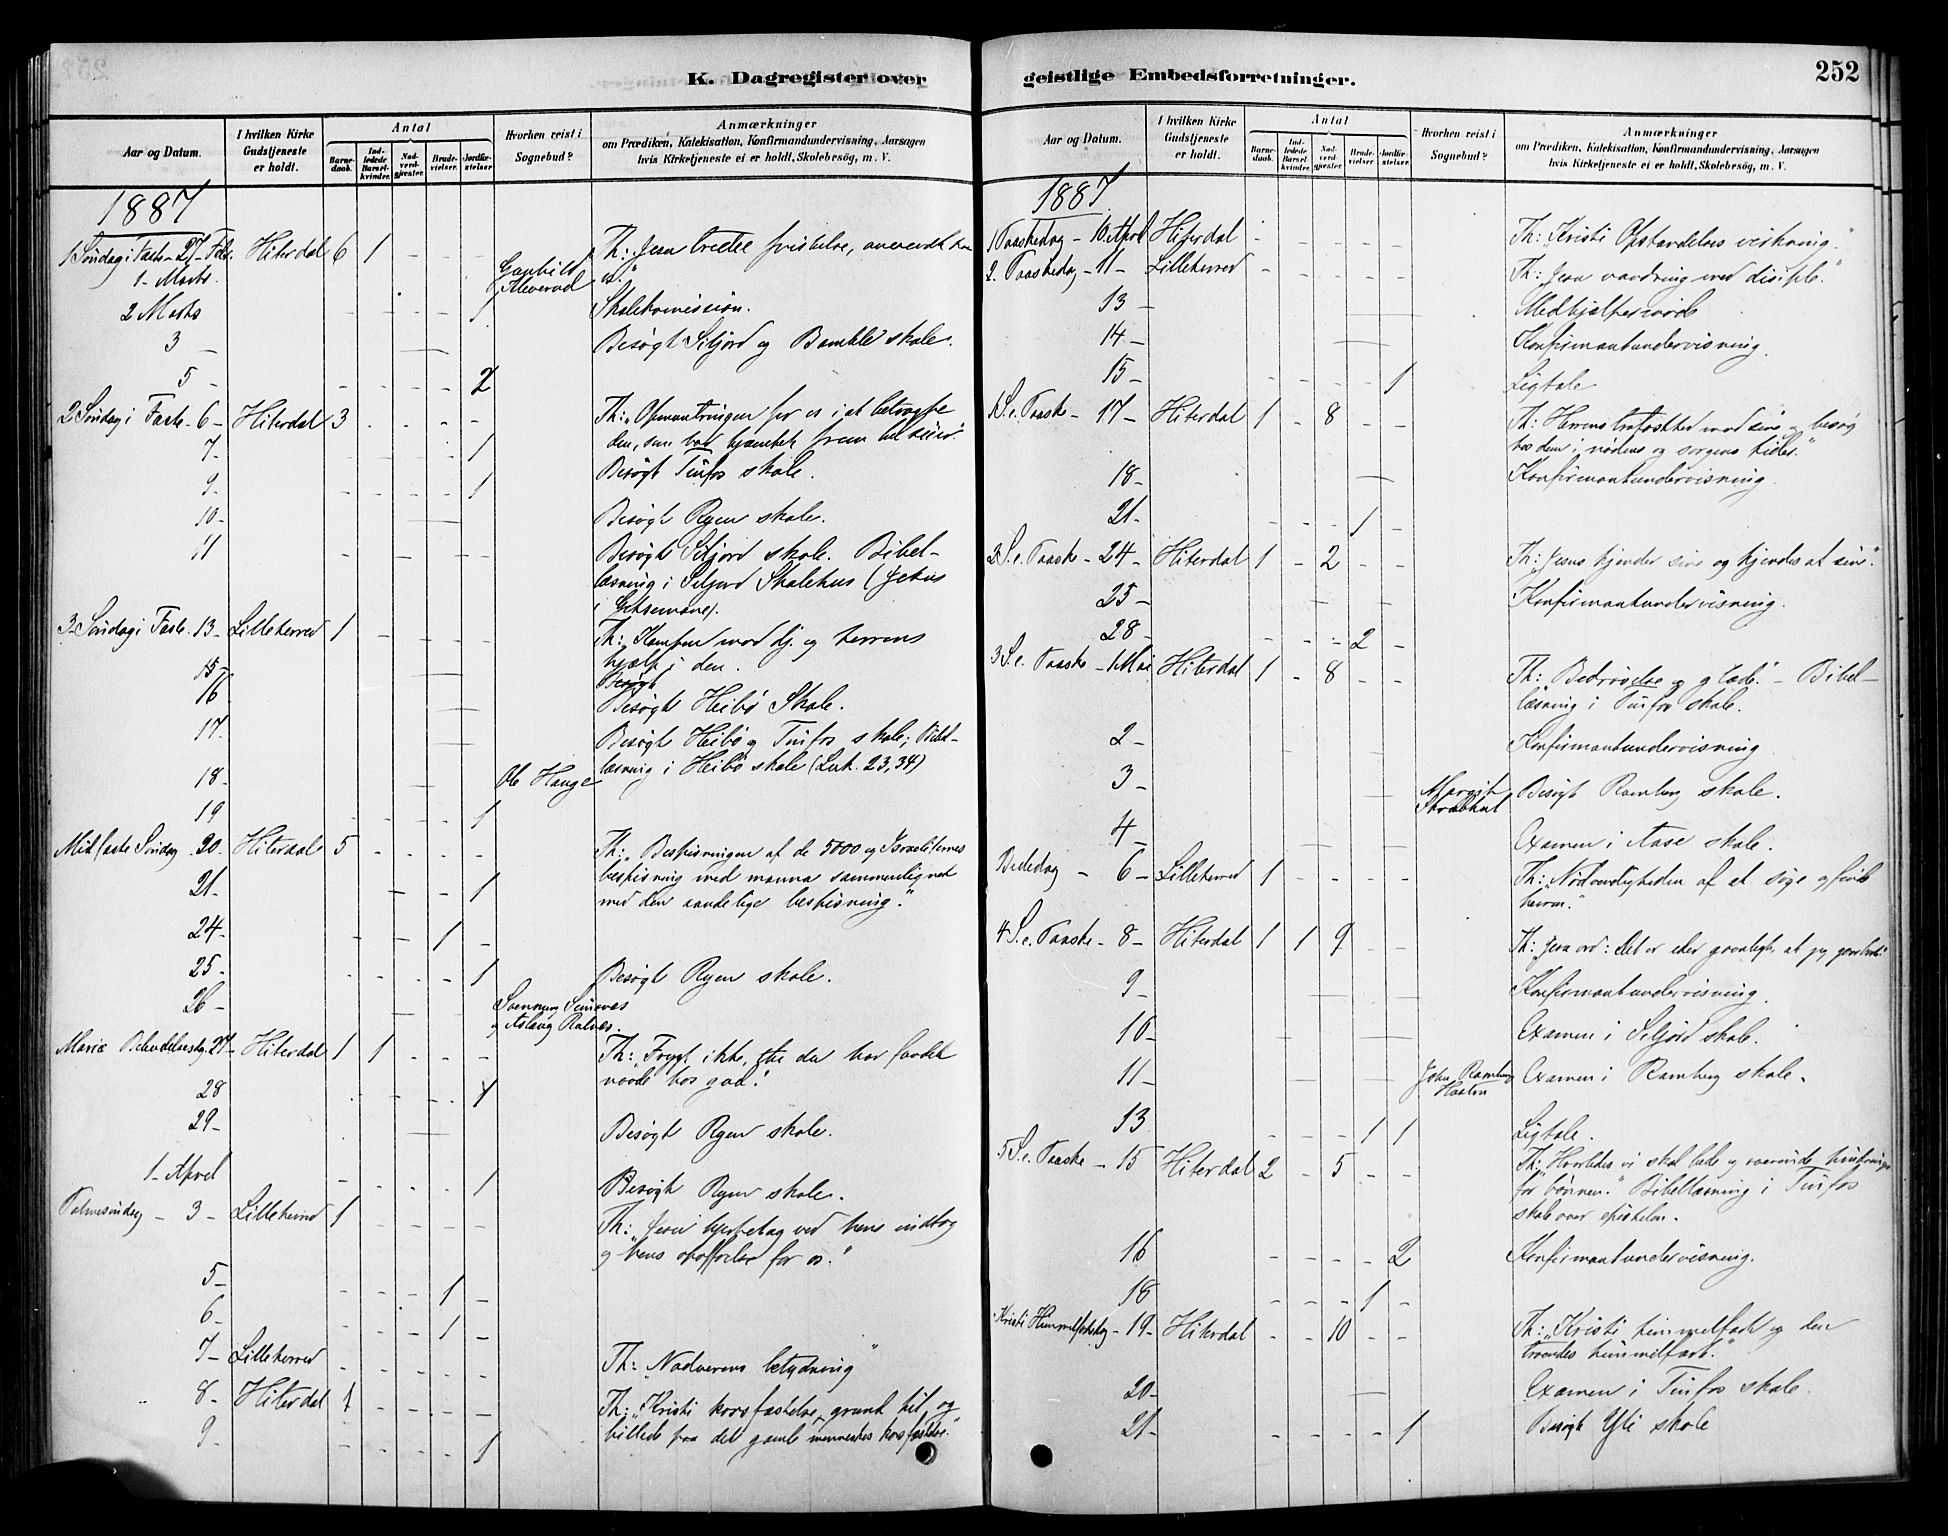 K. Dagregister over geistlige Embedsforretninger.
252
Aar og Datum.
I hvilken Kirke Gudstjeneste er holdt.
Antal
Barnedaab.
Indledede Barselkvinder.
Nadverdgjester.
Brudevielser.
Jordfæstelser.
Hvorhen reist i Sognebud?
Anmærkninger
om Prædiken, Katekisation, Konfirmandundervisning, Aarsagen
hvis Kirketjeneste ei er holdt, Skolebesög, m. V.
1887
1 Söndag i Faste - 27 - Febr. Hiterdal 6 1 - - - Th: Jesu tredie fristelse, anvendt
1 - Marts.
2 Marts - - - - 1 Skolekomission.
3 - Besögt Siljord og Bamble skole.
5 - - - - - 2
2 Söndag i Faste - 6 - Hiterdal 3 - - - - Th: "Opmuntringen for os i at betragte
den, som
7 - - - - - 1
9 - - - - - 1 Besögt Tinfos skole.
10 - Besögt Ryen skole.
11 - - - - - Besögt Siljord skole. Bibel-
læsning i Siljord Skolehus (Jesus
i Getsemane).
3 Söndag i Faste - 13 - Lilleherred 1 - - - - Th: "Kampen mod dj. og herrens
hjælp i den.
15 - Besögt
16 Besögt Heibö Skole.
17 - Besögt Heibö og Tinfos skole; Bibel-
læsning i Heibö skole (Luk. 23,34)
18 - Ole Hauge
19 - - - - 1
Midfaste Söndag 20 - Hiterdal 5 - - - - Th: "Bespisningen af de 5000 og Israeliternes
bespisning med manna sammenlignet
med den aandelige bespisning."
21 - - - - - 1
24 - - - - 1 -
25 - - - - - 1 Besögt Ryen skole.
26 -
og Aslaug
Mariæ Bebudelsesdg. 27 - Hiterdal 1 1 - - - Th: "Frygt ikke, thi du har fundet
naade hos gud."
28 - - - -
29 - Besögt Ryen skole.
1 - April - - - - 1 Besögt Ryen skole.
Palmesöndag - 3 - Lilleherred 1 - - - - Th: "Jesu
og hans opoffrelse for os."
5 - - - - 1 -
6 - - - - 1 -
7 - Lilleherred - - - - - Th: "Nadverens betydning"
8 - Hiterdal 1 - - - - Th: "Kristi korsfæstelse, grund til og
billede paa det gamle menneskes korsfæstelse."
9 - - - - - 1
Aar og Datum.
I hvilken Kirke Gudstjeneste er holdt.
Antal
Barnedaab.
Indledede Barselkvinder.
Nadverdgjester.
Brudevielser.
Jordfæstelser.
Hvorhen reist i Sognebud?
Anmærkninger
om Prædiken, Katekisation, Konfirmandundervisning, Aarsagen
hvis Kirketjeneste ei er holdt, Skolebesög, m. V.
1887
1 Paaskedag - 10. April Hiterdal - - - - - Th: "Kristi Opstandelses virkning."
2. Paaskedag - 11 - Lilleherred - - - - - Th: "Jesu vandring med disiple."
13 - Medhjælpermöde
14 - Konfirmantundervisning.
15 - - - - - 1 Ligtale
1 S. e. Paaske - 17 - Hiterdal 1 - 8 - - Th: Herrens trofasthed mod sine og besög
hos dem i nödens og sorgens tider."
18 - Konfirmantundervisning.
21 - - - - 1 -
2 S. e. Paaske - 24 - Hiterdal 1 - 2 - - Th: "Jesus kjender sine og kjendes af sine".
25 - Konfirmantundervisning.
28 - - - - 2 -
3 S. e. Paaske - 1 Mai Hiterdal 1 - 8 - - Th: "Bedrövelse og glæde." - Bibel-
læsning i Tinfos skole.
2 - Konfirmantundervisning
3 - Margit Besögt Ramberg skole.
4 - Examen i Aase skole.
Bededag - 6 - Lilleherred 1 - - - - Th: "Nödvendigheden af at söge og finde
herren."
4 S. e. Paaske - 8 - Hiterdal 1 1 9 - - Th: "Jesu ord: Det er eder gavnligt, at jeg gaar bort."
9 - Konfirmantundervisning.
10 - Examen i Siljord skole.
11 - John Ramberg Examen i Ramberg skole.
13 - - - 1 1 Ligtale.
5 S. e. Paaske - 15 Hiterdal 2 - 5 - - Th: "Hvorledes vi skal lede og overvinde hindringer
for bönnen." Bibellæsning i Tinfos
skole over epistelen.
16 - - - - 2 Konfirmantundervisning.
18 - - - 1 -
Kristi Himmelfartsdag - 19 - Hiterdal - - 10 - - Th: "Kristi himmelfart og den
troendes himmelfart."
20 - Examen i Tinfos skole.
21 - - - - - 1 Besögt Yli skole